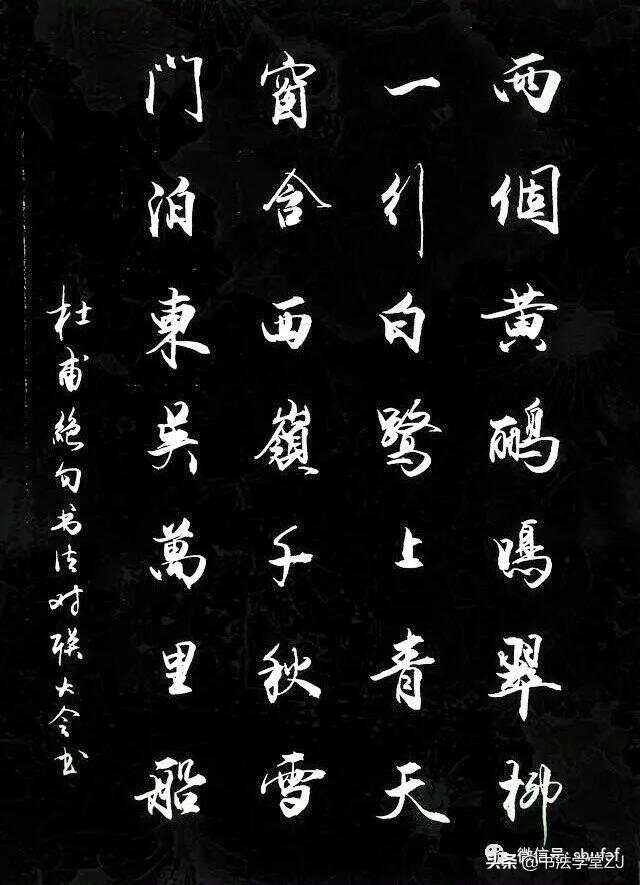 兩個黃鸝鳴翠柳
一行白鷺上青天
窗含西嶺千秋雪
門泊東吳萬里船
杜甫絕句书法对联大会书
微信号: shufaf
头条 @书法学堂ZJ